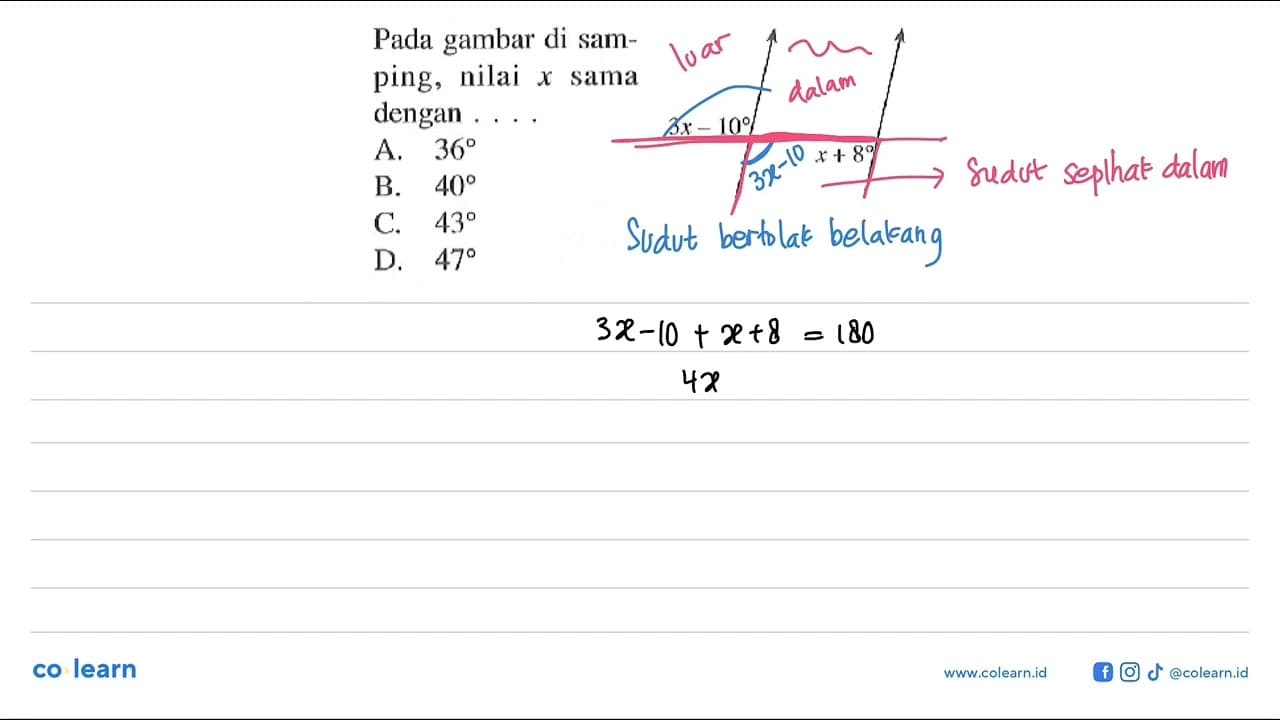 Pada gambar di sam-
ping, nilai x sama
dengan . . . .
A. 36°
B. 40°
C. 43°
D. 47°
luar
dalam
3x – 10°
3x-10
x + 8°
Sudut sepihak dalam
Sudut bertolak belakang
3x-10 + x+8 = 180
4x
co learn
www.colearn.id
@colearn.id